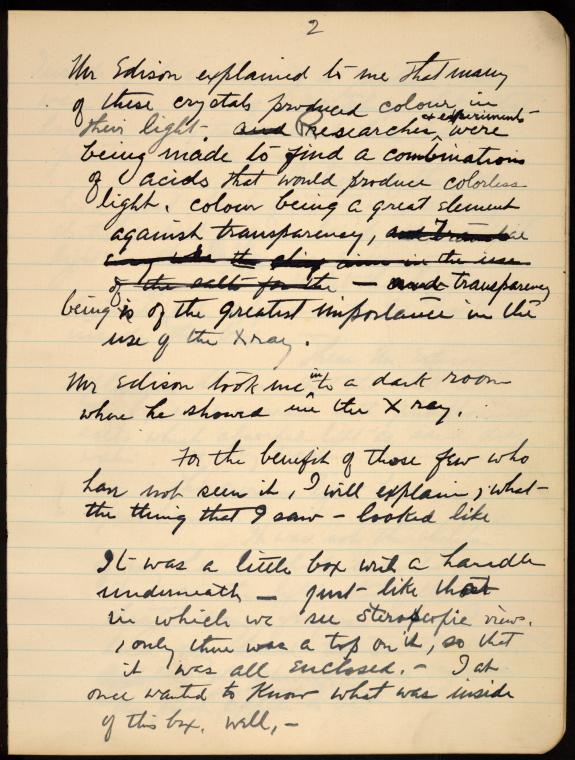 2
Mr Edison explained to me that many
of these crystals produced colour in
their light. and Researches + experiments were
being made to find a combinations
of acids that would produce colorless
light. colour being a great element
against transparency, and
the in the use
of the salts for the — and transparency
being is of the greatest importance in the
use of the X ray.
Mr Edison took me into a dark room
where he showed me the X ray.
For the benefit of those few who
have not seen it, I will explain, what
the thing that I saw - looked like
It was a little box with a handle
underneath — just like that
in which we see views,
, only there was a top on it, so that
it was all enclosed. - I at
once wanted to know what was inside
of this box. Well, -